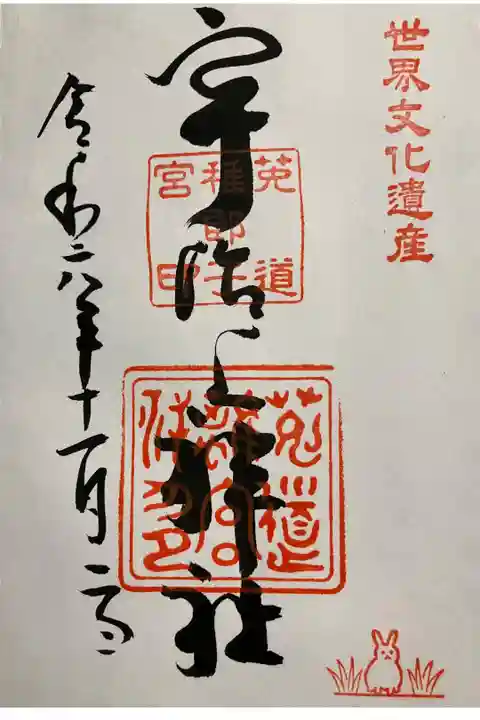 世界文化遺産
宇治上神社
菟道
稚郎子
宮印
菟道
令和六年十一月